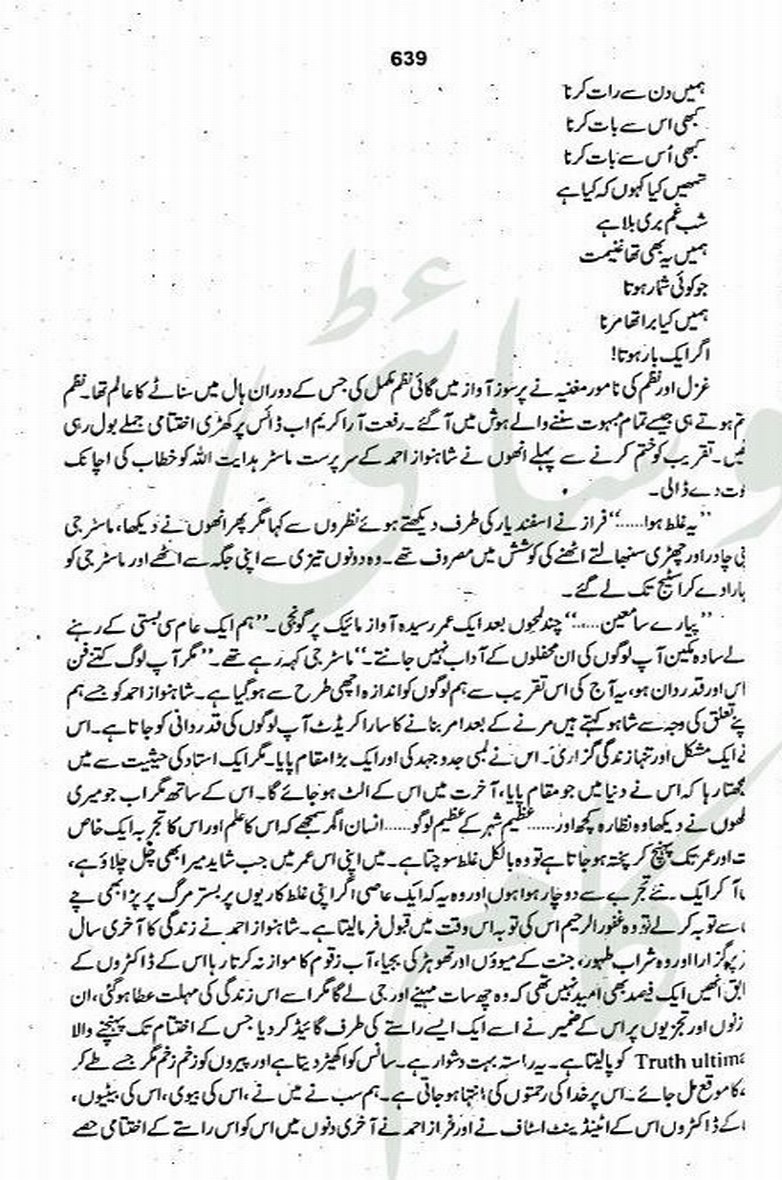 639
ہمیں دن سے رات کرنا
کبھی اس سے بات کرنا
کبھی اُس سے بات کرنا
تمھیں کیا کہوں کہ کیا ہے
شب غم بری بلا ہے
ہمیں یہ بھی تھا غنیمت
جو کوئی شمار ہوتا
ہمیں کیا برا تھا مرنا
اگر ایک بار ہوتا!
غزل اور نظم کی نامور مغنیہ نے پرسوز آواز میں گائی نظم مکمل کی جس کے دوران ہال میں سناٹے کا عالم تھا۔ نظم
تم ہوتے ہی جیسے تمام مبہوت سننے والے ہوش میں آ گئے۔ رفعت آرا کریم اب ڈائس پر کھڑی اختتامی جملے بول رہی
تھیں۔ تقریب کو ختم کرنے سے پہلے انھوں نے شاہنواز احمد کے سرپرست ماسٹر ہدایت اللہ کو خطاب کی اچانک
وت دے ڈالی۔
’’یہ غلط ہوا......‘‘ فراز نے اسفند یار کی طرف دیکھتے ہوئے نظروں سے کہا مگر پھر انھوں نے دیکھا، ماسٹر جی
نی چادر اور چھڑی سنبھالتے اٹھنے کی کوشش میں مصروف تھے۔ وہ دونوں تیزی سے اپنی جگہ سے اٹھے اور ماسٹر جی کو
ہارا دے کر اسٹیج تک لے گئے۔
’’پیارے سامعین......‘‘ چند لمحوں بعد ایک عمر رسیدہ آواز مائیک پر گونجی۔ ’’ہم ایک عام سی بستی کے رہنے
لے سادہ مکین آپ لوگوں کی ان محفلوں کے آداب نہیں جانتے۔‘‘ ماسٹر جی کہہ رہے تھے۔ ’’مگر آپ لوگ کتنے فن
اس اور قدردان ہو، یہ آج کی اس تقریب سے ہم لوگوں کو اندازہ اچھی طرح سے ہو گیا ہے۔ شاہنواز احمد کو جسے ہم
پنے تعلق کی وجہ سے شاہو کہتے ہیں مرنے کے بعد امر بنانے کا سارا کریڈٹ آپ لوگوں کی قدردانی کو جاتا ہے۔ اس
نے ایک مشکل اور تنہا زندگی گزاری۔ اس نے لمبی جدوجہد کی اور ایک بڑا مقام پایا۔ مگر ایک استاد کی حیثیت سے میں
جھتا رہا کہ اس نے دنیا میں جو مقام پایا، آخرت میں اس کے الٹ ہو جائے گا۔ اس کے ساتھ مگر اب جو میری
کھوں نے دیکھا وہ نظارہ کچھ اور...... عظیم شہر کے عظیم لوگو...... انسان اگر سمجھے کہ اس کا علم اور اس کا تجربہ ایک خاص
ت اور عمر تک پہنچ کر پختہ ہو جاتا ہے تو وہ بالکل غلط سوچتا ہے۔ میں اپنی اس عمر میں جب شاید میرا بھی چل چلاؤ ہے،
آ کر ایک نئے تجربے سے دوچار ہوا ہوں اور وہ یہ کہ ایک عاصی اگر اپنی غلط کاریوں پر بستر مرگ پر پڑا بھی چے
سے توبہ کر لے تو وہ غفور الرحیم اس کی توبہ اس وقت میں قبول فرما لیتا ہے۔ شاہنواز احمد نے زندگی کا آخری سال
پر گزارا اور وہ شراب طہور، جنت کے میوؤں اور تھوہڑ کی بجیا، آب زقوم کا موازنہ کرتا رہا اس کے ڈاکٹروں کے
ابق انھیں ایک فیصد بھی امید نہیں تھی کہ وہ چھ سات مہینے اور جی لے گا مگر اسے اس زندگی کی مہلت عطا ہو گئی، ان
زنوں اور تجزیوں پر اس کے ضمیر نے اسے ایک ایسے راستے کی طرف گائیڈ کر دیا جس کے اختتام تک پہنچنے والا
Truth ultim کو پا لیتا ہے۔ یہ راستہ بہت دشوار ہے۔ سانس کو اکھیڑ دیتا ہے اور پیروں کو زخم زخم مگر جسے طے کر
کا موقع مل جائے۔ اس پر خدا کی رحمتوں کی انتہا ہو جاتی ہے۔ ہم سب نے میں نے، اس کی بیوی، اس کی بیٹیوں،
کے ڈاکٹروں اس کے اٹینڈینٹ اسٹاف نے اور فراز احمد نے آخری دنوں میں اس کو اس راستے کے اختتامی حصے